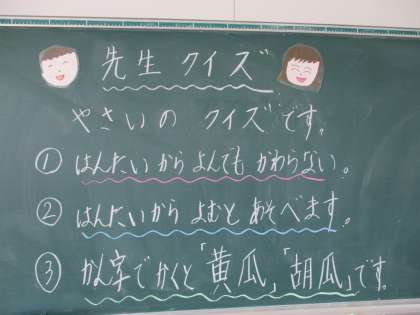 先生 クイズ
やさいの クイズです。
① はんたいから よんでも かわらない。
② はんたいから よむと あそべます。
③ かん字で かくと「黄瓜」「胡瓜」です。